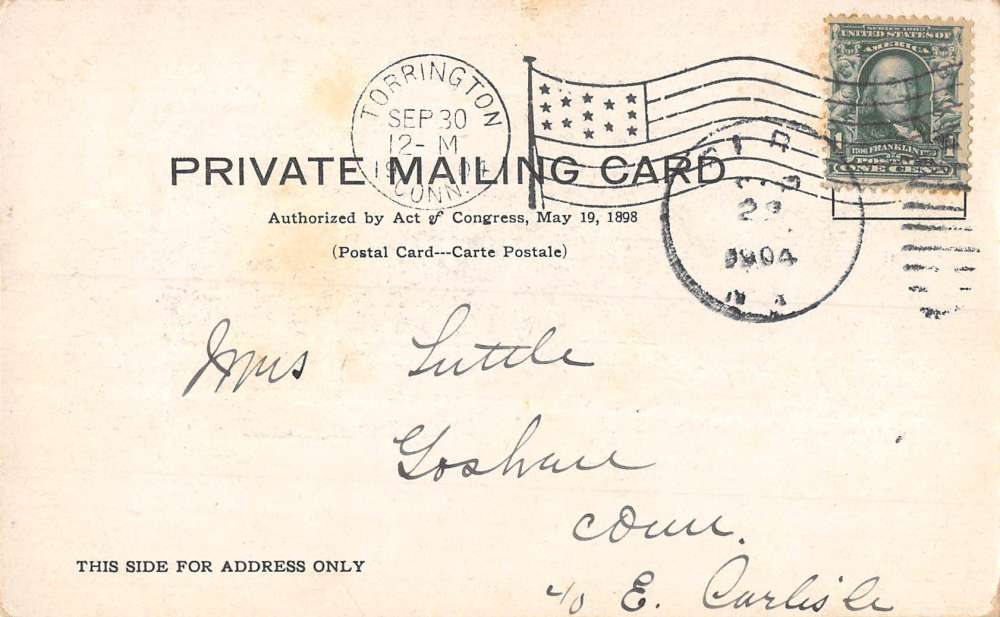 SERIES 1902
UNITED STATES OF
AMERICA
FRANKLIN
ONE CENT
TORRINGTON
SEP 30
12-M
CONN.
PRIVATE MAILING CARD
Authorized by Act of Congress, May 19, 1898
(Postal Card---Carte Postale)
1904
Mrs Tuttle
Goshen
Conn.
c/o E. Carlisle
THIS SIDE FOR ADDRESS ONLY